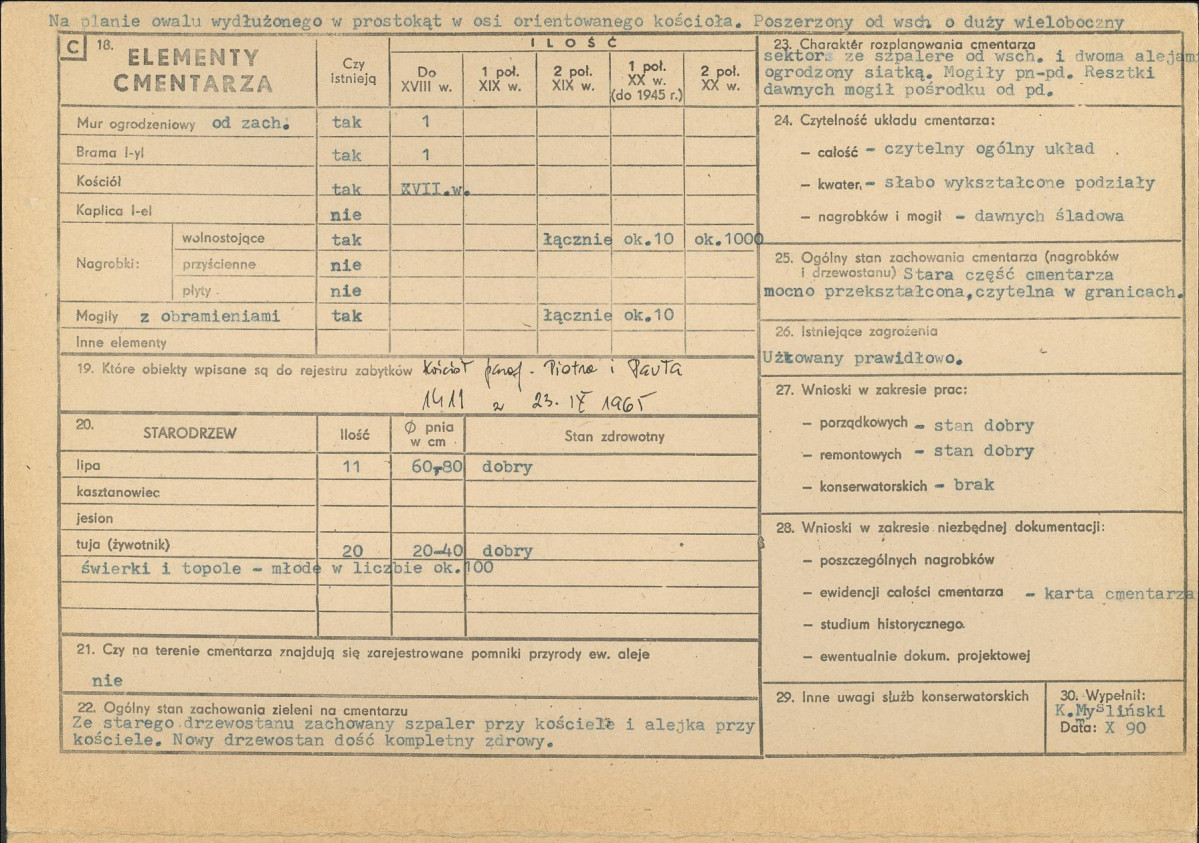 Na planie owalu wydłużonego w prostokąt w osi orientowanego kościoła. Poszerzony od wsch o duży wieloboczny
C 18. ELEMENTY CMENTARZA
Czy istnieją
ILOŚĆ
Do XVIII w.
1 poł. XIX w.
2 poł. XIX w.
1 poł. XX w. (do 1945 r.)
2 poł. XX w.
Mur ogrodzeniowy od zach. tak 1
Brama l-yl tak 1
Kościół tak XVII.w.
Kaplica l-el nie
Nagrobki: wolnostojące tak łącznie ok.10 ok.1000
przyścienne nie
płyty nie
Mogiły z obramieniami tak łącznie ok.10
Inne elementy
19. Które obiekty wpisane są do rejestru zabytków Kościół paraf. Piotra i Pawła
1411 z 23. IX 1965
20. STARODRZEW Ilość Ø pnia w cm Stan zdrowotny
lipa 11 60-80 dobry
kasztanowiec
jesion
tuja (żywotnik) 20 20-40 dobry
świerki i topole - młode w liczbie ok.100
21. Czy na terenie cmentarza znajdują się zarejestrowane pomniki przyrody ew. aleje
nie
22. Ogólny stan zachowania zieleni na cmentarzu
Ze starego drzewostanu zachowany szpaler przy kościele i alejka przy
kościele. Nowy drzewostan dość kompletny zdrowy.
23. Charakter rozplanowania cmentarza
sektor ze szpalere od wsch. i dwoma alejami
ogrodzony siatką. Mogiły pn-pd. Resztki
dawnych mogił pośrodku od pd.
24. Czytelność układu cmentarza:
– całość - czytelny ogólny układ
– kwater, - słabo wykształcone podziały
– nagrobków i mogił - dawnych śladowa
25. Ogólny stan zachowania cmentarza (nagrobków
i drzewostanu) Stara część cmentarza
mocno przekształcona,czytelna w granicach.
26. Istniejące zagrożenia
Użkowany prawidłowo.
27. Wnioski w zakresie prac:
– porządkowych - stan dobry
– remontowych - stan dobry
– konserwatorskich - brak
28. Wnioski w zakresie niezbędnej dokumentacji:
– poszczególnych nagrobków
– ewidencji całości cmentarza - karta cmentarza
– studium historycznego
– ewentualnie dokum. projektowej
29. Inne uwagi służb konserwatorskich
30. Wypełnił:
K.Myśliński
Data: X 90